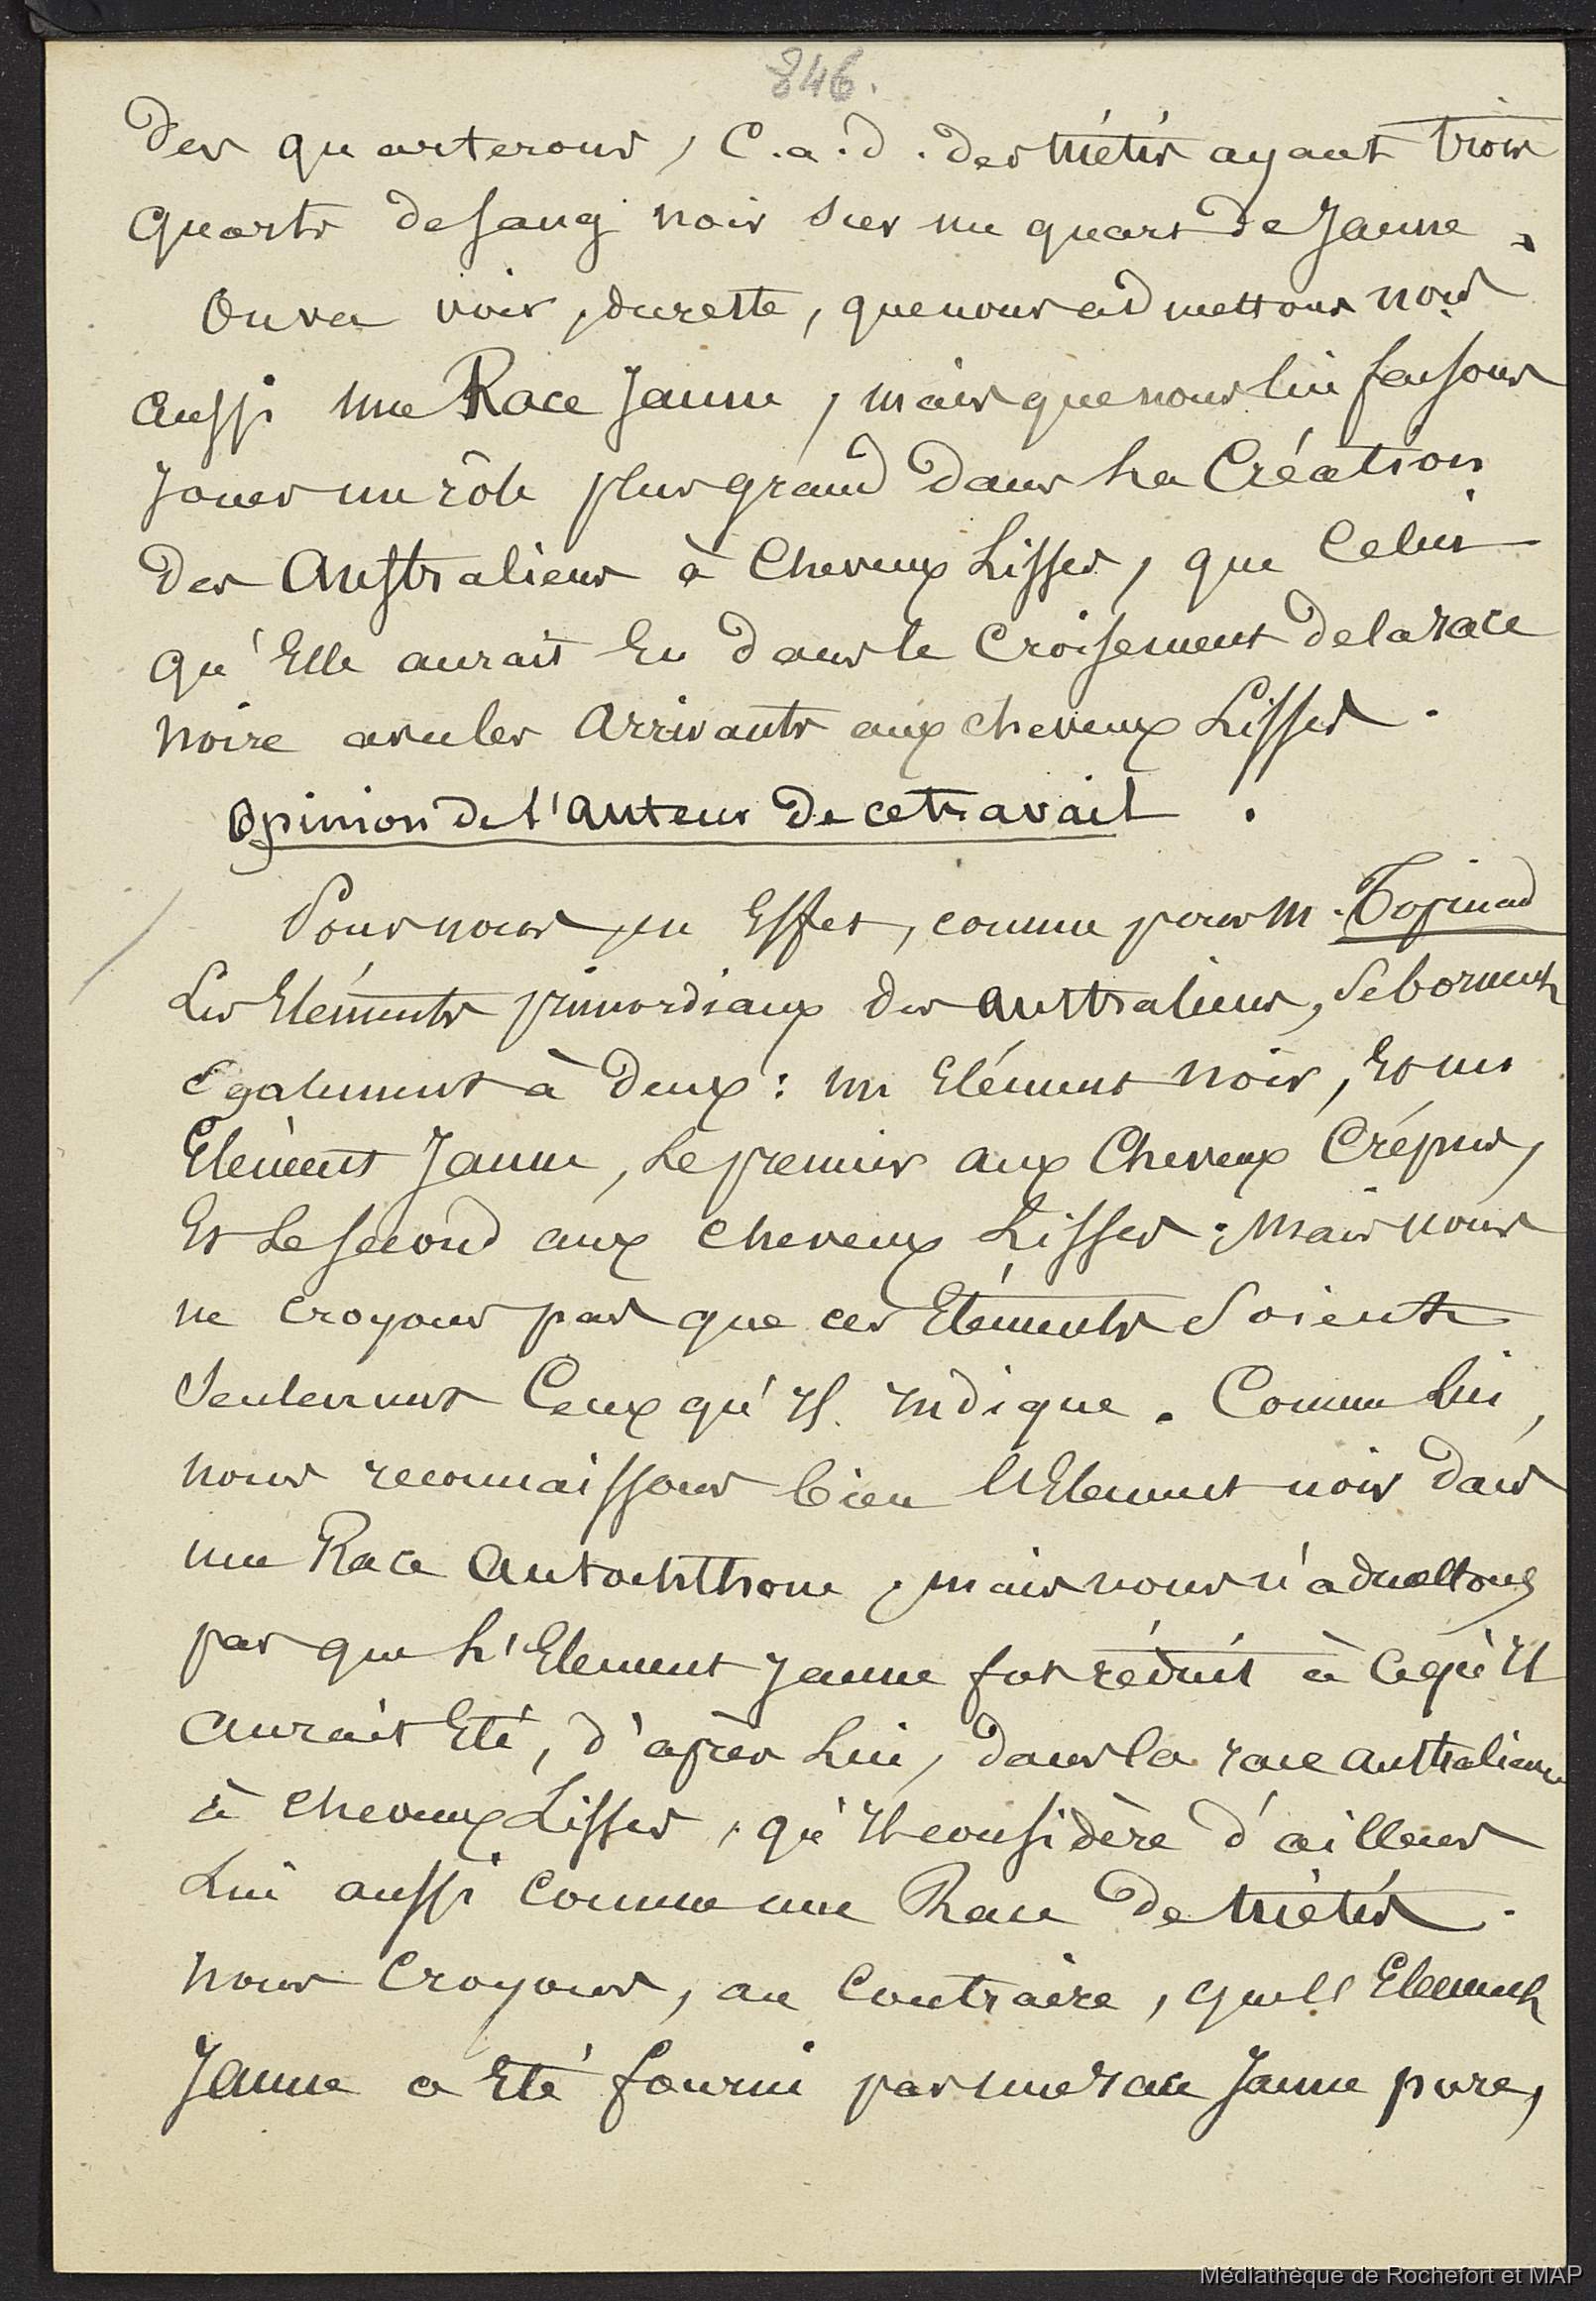 846.
des quarterons, C.a.d. des métis ayant trois
quarts de sang noir sur un quart de Jaune.
On va voir, du reste, que nous admettons nous
aussi une Race Jaune, mais que nous lui faisons
Jouer un rôle plus grand dans La Création
des Australiens à Cheveux Lisses, que Celui
qu'Elle aurait Eu dans le Croisement de la race
noire avec les Arrivants aux cheveux Lisses.
Opinion de l'Auteur de ce travail.
Pour nous, en Effet, comme pour M. Topinard
Les Eléments primordiaux des Australiens, se bornent
Egalement à deux: un Elément noir, Et un
Elément Jaune, Le premier aux Cheveux Crépus,
Et Le second aux cheveux Lisses; Mais nous
ne croyons pas que ces Eléments Soient
Seulement Ceux qu'Il Indique. Comme Lui,
nous reconnaissons bien l'Elément noir dans
une Race Autochthone, mais nous n'admettons
pas que L'Elément Jaune fut réduit à ce qu'Il
aurait Eté, d'après Lui, dans la race australienne
à cheveux Lisses, qu'Il considère d'ailleurs
Lui aussi Comme une Race de métis.
nous Croyons, au Contraire, que l'Elément
Jaune a Eté fourni par une race Jaune pure,
Médiathèque de Rochefort et MAP